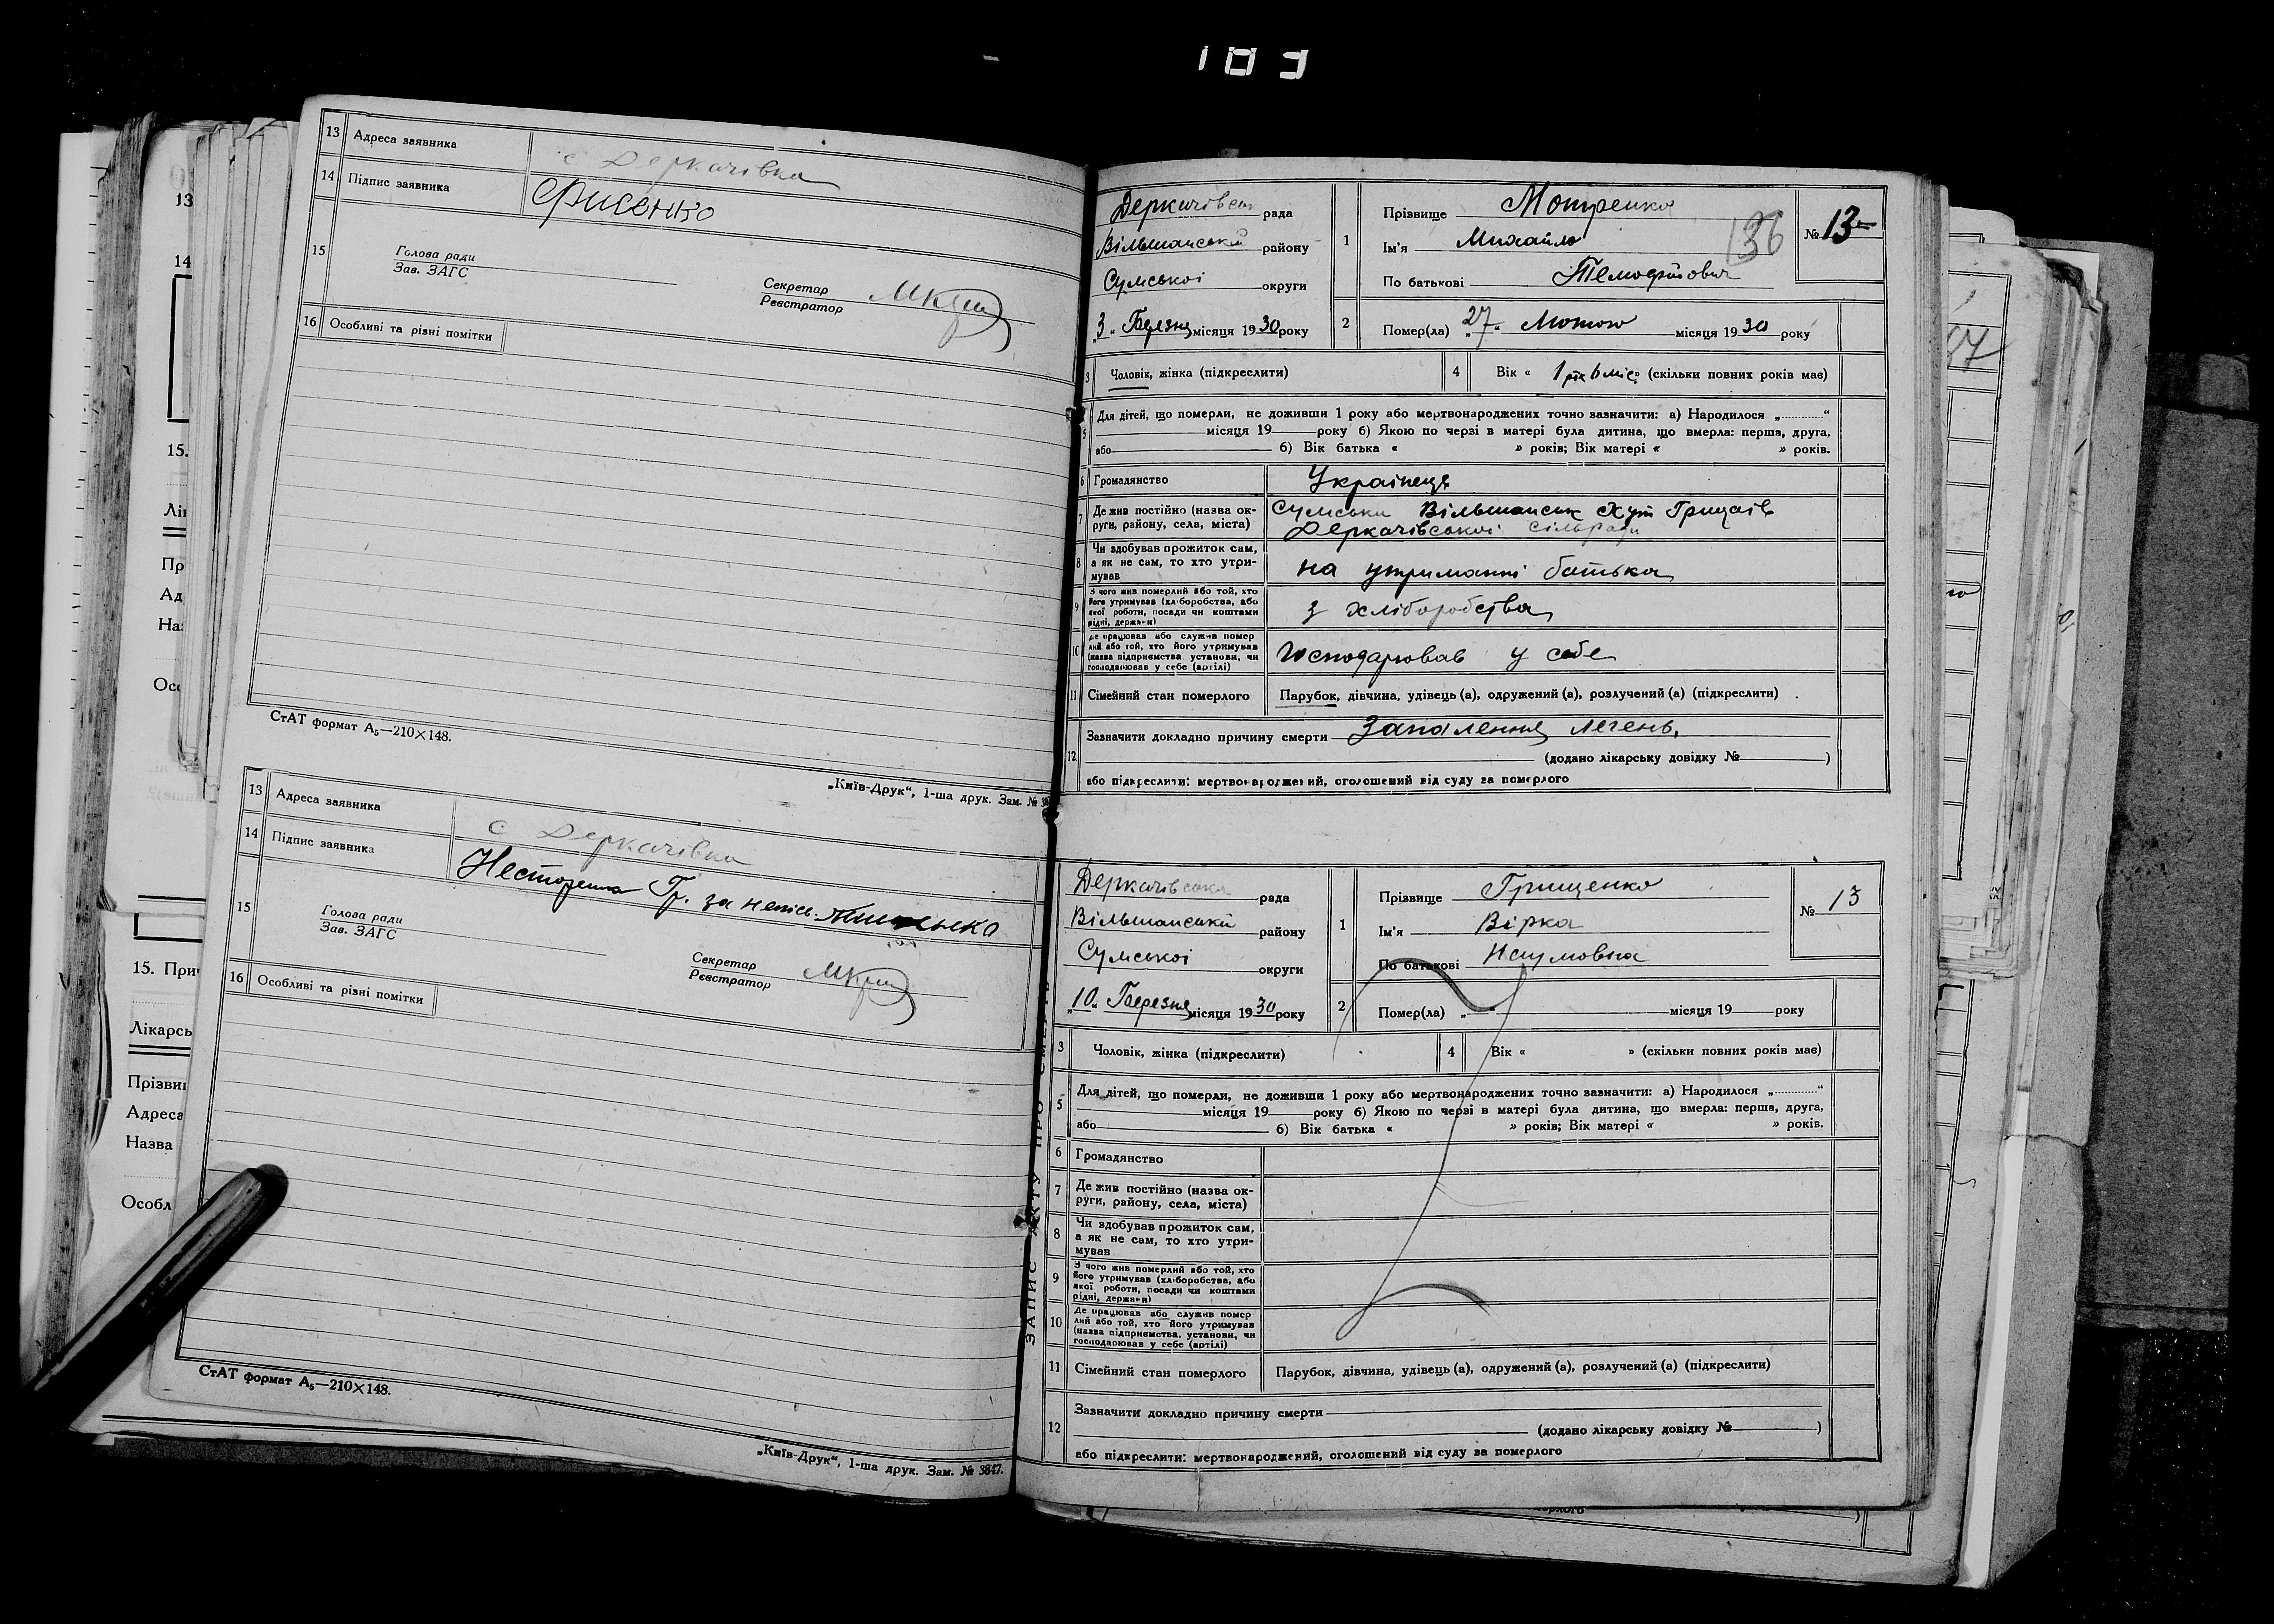 103
13 Адреса заявника с Деркачівка
14 Підпис заявника Фисенко
15 Голова ради
Зав. ЗАГС
Секретар
Реєстратор
16 Особливі та різні помітки
СтАТ формат А₅—210×148.
„Київ-Друк“, 1-ша друк. Зам. №
13 Адреса заявника с Деркачівка
14 Підпис заявника Несторенко Гр. за непись.
15 Голова ради
Зав. ЗАГС
Секретар
Реєстратор
16 Особливі та різні помітки
СтАТ формат А₅—210×148.
„Київ-Друк“, 1-ша друк. Зам. № 3847.
Деркачівська рада
Вільшанський району
Сумської округи
„3“ Березня місяця 1930 року
1 Прізвище Мотренко
Ім'я Михайло
По батькові
136
№ 13
2 Помер(ла) „27“ Лютого місяця 1930 року
3 Чоловік, жінка (підкреслити)
4 Вік « 1 рік 6 міс » (скільки повних років має)
5 Для дітей, що померли, не доживши 1 року або мертвонароджених точно зазначити: а) Народилося „............“
місяця 19 року б) Якою по черзі в матері була дитина, що вмерла: перша, друга,
або б) Вік батька « » років; Вік матері « » років.
6 Громадянство Українець
7 Де жив постійно (назва ок-
руги, району, села, міста) Сумська Вільшанськ Хут Грицаїв
Деркачівської сільради
8 Чи здобував прожиток сам,
а як не сам, то хто утри-
мував на утриманні батька
9 З чого жив померлий або той, хто
його утримував (хліборобства, або
якої роботи, посади чи коштами
рідні, держави) з хліборобства
10 Де працював або служив помер
лий або той, хто його утримував
(назва підприємства, установи, чи
господарював у себе (артілі) Господарював у себе
11 Сімейний стан померлого Парубок, дівчина, удівець (а), одружений (а), розлучений (а) (підкреслити)
12 Зазначити докладно причину смерти Запалення легень.
(додано лікарську довідку № )
або підкреслити: мертвонароджений, оголошений від суду за померлого
Деркачівська рада
Вільшанський району
Сумської округи
„10“ Березня місяця 1930 року
1 Прізвище Грищенко
Ім'я Вірка
По батькові Наумовна
№ 13
2 Помер(ла) „ “ місяця 19 року
3 Чоловік, жінка (підкреслити)
4 Вік « » (скільки повних років має)
5 Для дітей, що померли, не доживши 1 року або мертвонароджених точно зазначити: а) Народилося „............“
місяця 19 року б) Якою по черзі в матері була дитина, що вмерла: перша, друга,
або б) Вік батька « » років; Вік матері « » років.
6 Громадянство
7 Де жив постійно (назва ок-
руги, району, села, міста)
8 Чи здобував прожиток сам,
а як не сам, то хто утри-
мував
9 З чого жив померлий або той, хто
його утримував (хліборобства, або
якої роботи, посади чи коштами
рідні, держави)
10 Де працював або служив помер
лий або той, хто його утримував
(назва підприємства, установи, чи
господарював у себе (артілі)
11 Сімейний стан померлого Парубок, дівчина, удівець (а), одружений (а), розлучений (а) (підкреслити)
12 Зазначити докладно причину смерти
(додано лікарську довідку № )
або підкреслити: мертвонароджений, оголошений від суду за померлого
13
14
15.
15. При
Лікарсь
Прізви
Адреса
Назва
Особл